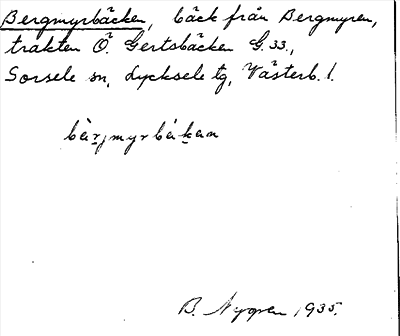 Bergmyrbäcken, bäck från Bergmyren,
trakten Ö. Gertsbäcken G. 33.,
Sorsele sn, Lycksele tg, Västerb. l.
bärjmyrbäkan
B. Nygren 1935.